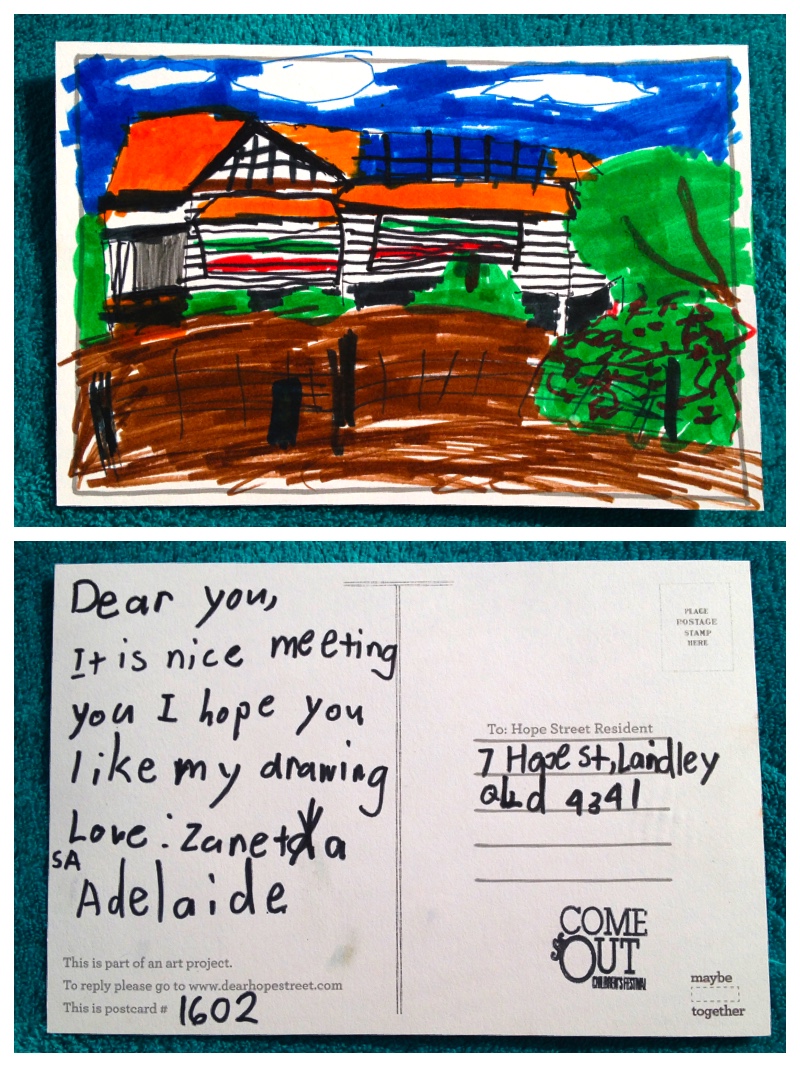 Dear you,
It is nice meeting
you I hope you
like my drawing
Love: Zaneta
SA
Adelaide
This is part of an art project.
To reply please go to www.dearhopestreet.com
This is postcard # 1602
PLACE
POSTAGE
STAMP
HERE
To: Hope Street Resident
7 Hope St, Laidley
QLD 4341
COME
OUT
CHILDREN'S FESTIVAL
maybe
together